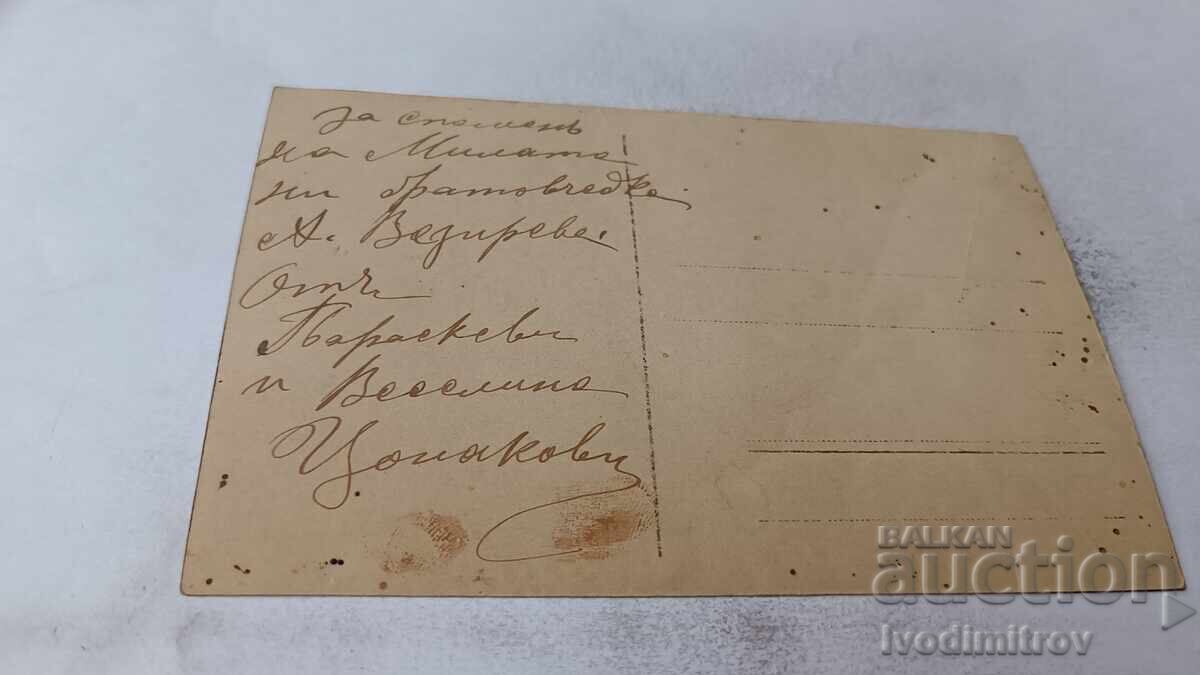 За споменъ
на Милата
ни братовчедка
А. Везирева.
Отъ
Параскеви
и Веселина
Цонакови
BALKAN
auction
Ivodimitrov